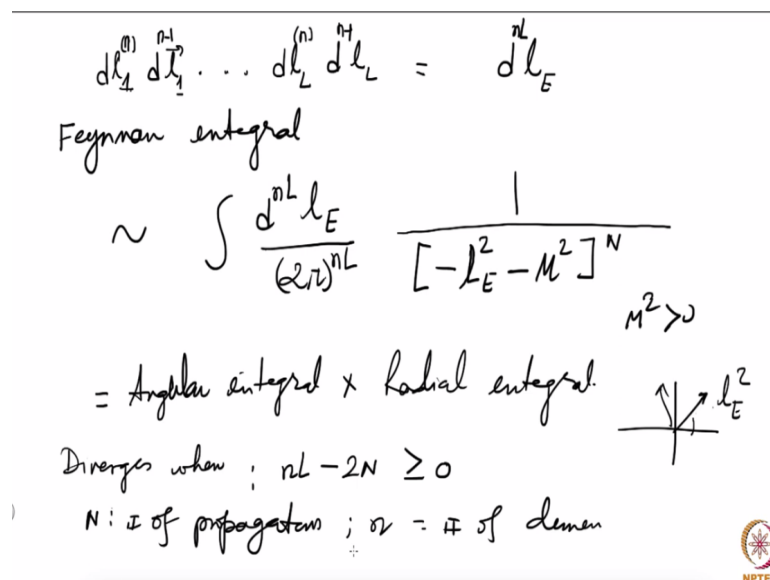 dl₁⁽ⁿ⁾ dⁿ⁻¹l₁ . . . dl_L⁽ⁿ⁾ dⁿ⁻¹l_L = dⁿᴸl_E
Feynman integral
~ ∫ dⁿᴸl_E / (2π)ⁿᴸ 1 / [-l_E² - M²]ᴺ
M² > 0
= Angular integral × Radial integral.
l_E²
Diverges when : nL - 2N ≥ 0
N : # of propagators ; n = # of dimen
NPTE